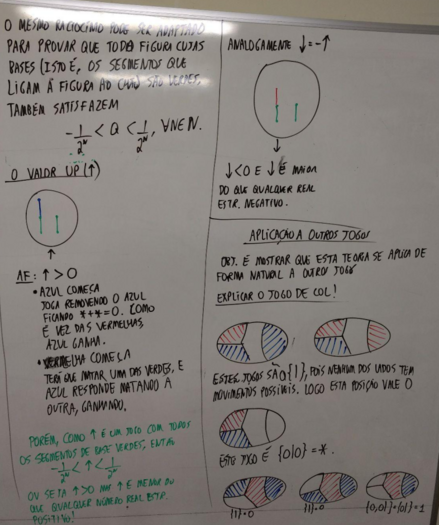 O MESMO RACIOCÍNIO PODE SER ADAPTADO
PARA PROVAR QUE TODA FIGURA CUJAS
BASES (ISTO É, OS SEGMENTOS QUE
LIGAM À FIGURA AO CHÃO) SÃO VERDES,
TAMBÉM SATISFAZEM
-1/2^N < G < 1/2^N, ∀N∈ℕ.
O VALOR UP (↑)
AF: ↑ > 0
• AZUL COMEÇA
JOGA REMOVENDO O AZUL
FICANDO *+*=0. COMO
É VEZ DAS VERMELHAS,
AZUL GANHA.
• VERMELHA COMEÇA
TERÁ QUE MATAR UMA DAS VERDES, E
AZUL RESPONDE MATANDO A
OUTRA, GANHANDO.
PORÉM, COMO ↑ É UM JOGO COM TODOS
OS SEGMENTOS DE BASE VERDES, ENTÃO
-1/2^N < ↑ < 1/2^N
OU SEJA ↑>0 MAS ↑ É MENOR DO
QUE QUALQUER NÚMERO REAL ESTR.
POSITIVO!
ANALOGAMENTE ↓=-↑
↓<0 E ↓ É MAIOR
DO QUE QUALQUER REAL
ESTR. NEGATIVO.
APLICAÇÃO A OUTROS JOGOS
OBJ. É MOSTRAR QUE ESTA TEORIA SE APLICA DE
FORMA NATURAL A OUTROS JOGOS
EXPLICAR O JOGO DE COL!
ESTES JOGOS SÃO {|}, POIS NENHUM DOS LADOS TEM
MOVIMENTOS POSSÍVEIS. LOGO ESTA POSIÇÃO VALE 0
ESTE JOGO É {0|0} = *.
{|}=0 {|}=0 {0,0|}={0|}=1